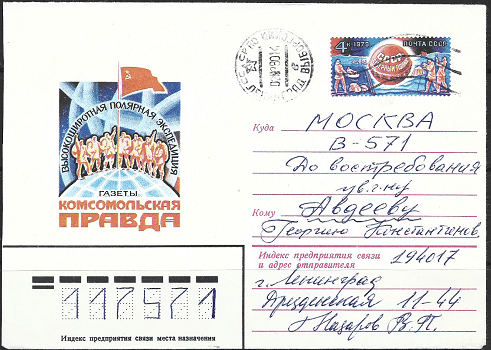 4 К 1979 ПОЧТА СССР
ВЫСОКОШИРОТНАЯ ПОЛЯРНАЯ ЭКСПЕДИЦИЯ
ГАЗЕТЫ
КОМСОМОЛЬСКАЯ
ПРАВДА
Куда МОСКВА
В-571
До востребования
Кому Авдееву
Георгию Константинов.
Индекс предприятия связи
и адрес отправителя 194017
г. Ленинград
Дрезденская 11-44
Назаров В.П.
117571
Индекс предприятия связи места назначения